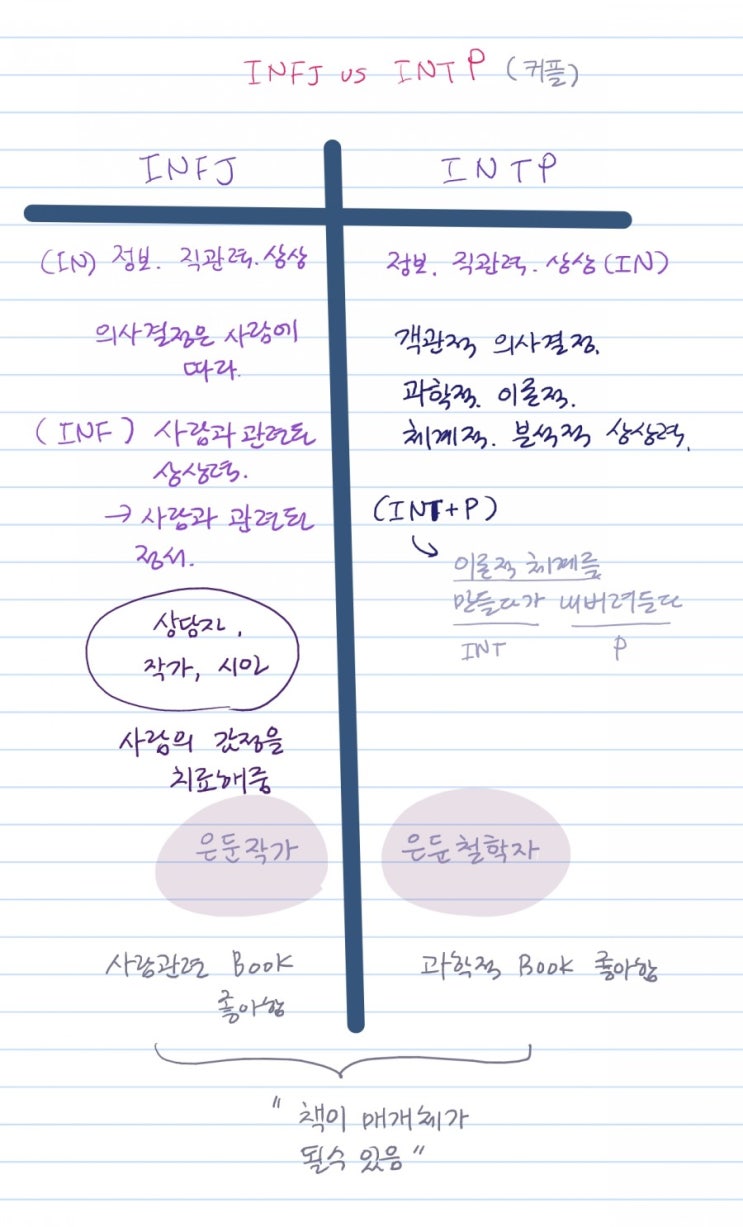 INFJ vs INTP (커플)
INFJ
(IN) 정보. 직관력. 상상
의사결정은 사람에
따라.
(INF) 사람과 관련된
상상력.
→ 사람과 관련된
정서.
상담자,
작가, 시인
사람의 감정을
치료해줌
은둔작가
사람관련 Book
좋아함
INTP
정보. 직관력. 상상 (IN)
객관적 의사결정.
과학적. 이론적.
체계적. 분석적 상상력.
(INT+P)
이론적 체계를
만들다가 내버려둔다
INT P
은둔철학자
과학적 Book 좋아함
"책이 매개체가
될수 있음"